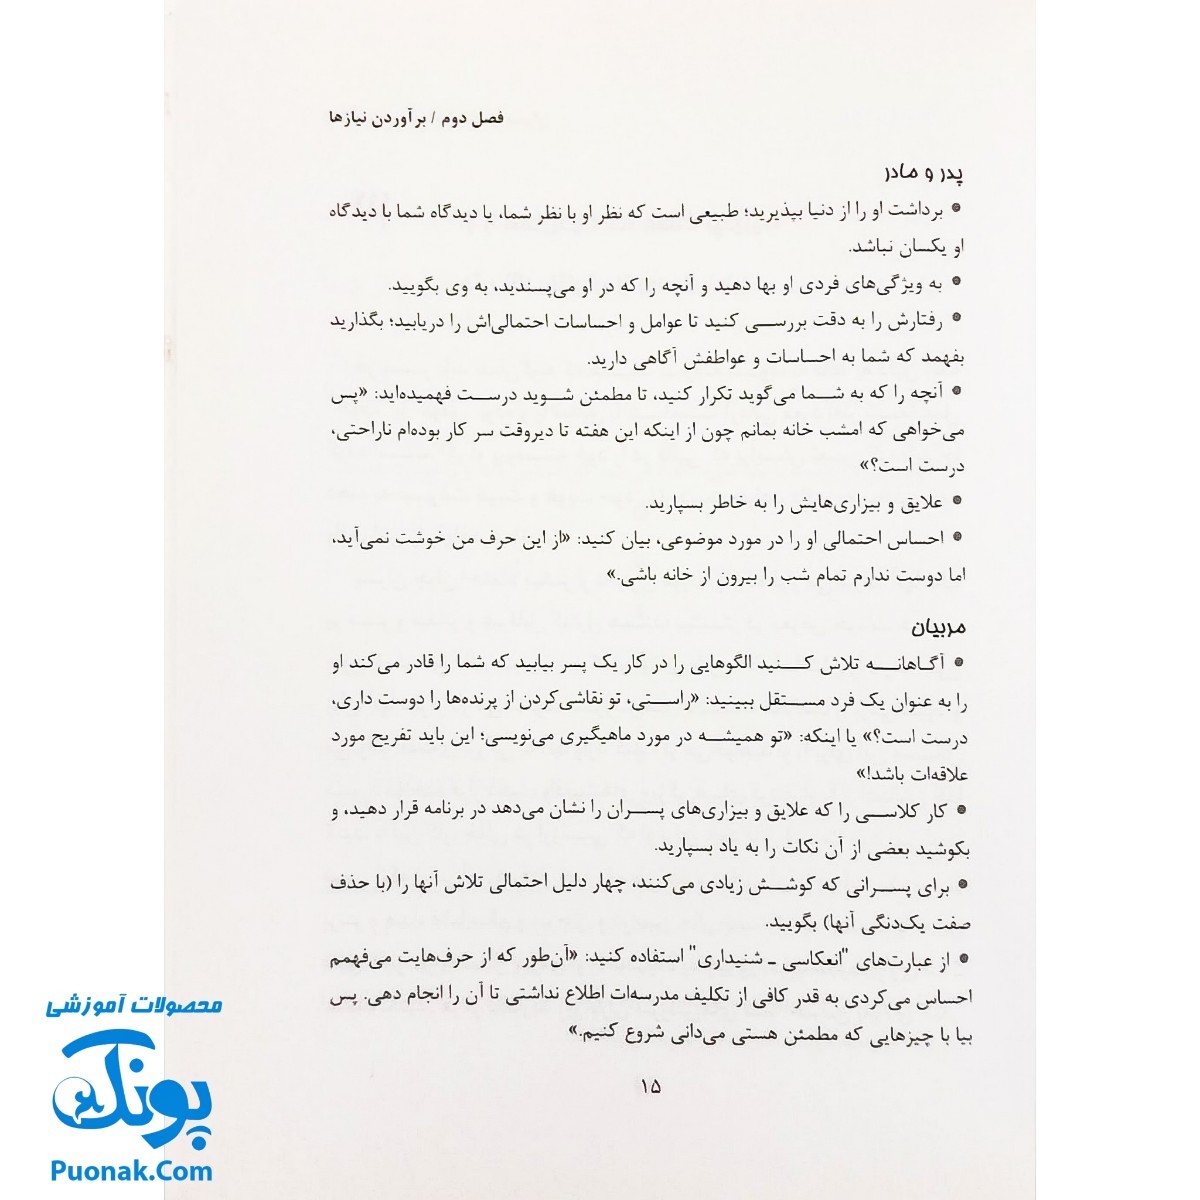 فصل دوم / برآوردن نیازها
پدر و مادر
● برداشت او را از دنیا بپذیرید؛ طبیعی است که نظر او با نظر شما، یا دیدگاه شما با دیدگاه
او یکسان نباشد.
● به ویژگی‌های فردی او بها دهید و آنچه را که در او می‌پسندید، به وی بگویید.
● رفتارش را به دقت بررسی کنید تا عوامل و احساسات احتمالی‌اش را دریابید؛ بگذارید
بفهمد که شما به احساسات و عواطفش آگاهی دارید.
● آنچه را که به شما می‌گوید تکرار کنید، تا مطمئن شوید درست فهمیده‌اید: «پس
می‌خواهی که امشب خانه بمانم چون از اینکه این هفته تا دیروقت سر کار بوده‌ام ناراحتی،
درست است؟»
● علایق و بیزاری‌هایش را به خاطر بسپارید.
● احساس احتمالی او را در مورد موضوعی، بیان کنید: «از این حرف من خوشت نمی‌آید،
اما دوست ندارم تمام شب را بیرون از خانه باشی.»
مربیان
● آگاهانه تلاش کنید الگوهایی را در کار یک پسر بیابید که شما را قادر می‌کند او
را به عنوان یک فرد مستقل ببینید: «راستی، تو نقاشی‌کردن از پرنده‌ها را دوست داری،
درست است؟» یا اینکه: «تو همیشه در مورد ماهیگیری می‌نویسی؛ این باید تفریح مورد
علاقه‌ات باشد!»
● کار کلاسی را که علایق و بیزاری‌های پسران را نشان می‌دهد در برنامه قرار دهید، و
بکوشید بعضی از آن نکات را به یاد بسپارید.
● برای پسرانی که کوشش زیادی می‌کنند، چهار دلیل احتمالی تلاش آنها را (با حذف
صفت یک‌دنگی آنها) بگویید.
● از عبارت‌های "انعکاسی ـ شنیداری" استفاده کنید: «آن‌طور که از حرف‌هایت می‌فهمم
احساس می‌کردی به قدر کافی از تکلیف مدرسه‌ات اطلاع نداشتی تا آن را انجام دهی. پس
بیا با چیزهایی که مطمئن هستی می‌دانی شروع کنیم.»
۱۵
محصولات آموزشی
پونک
Puonak.Com